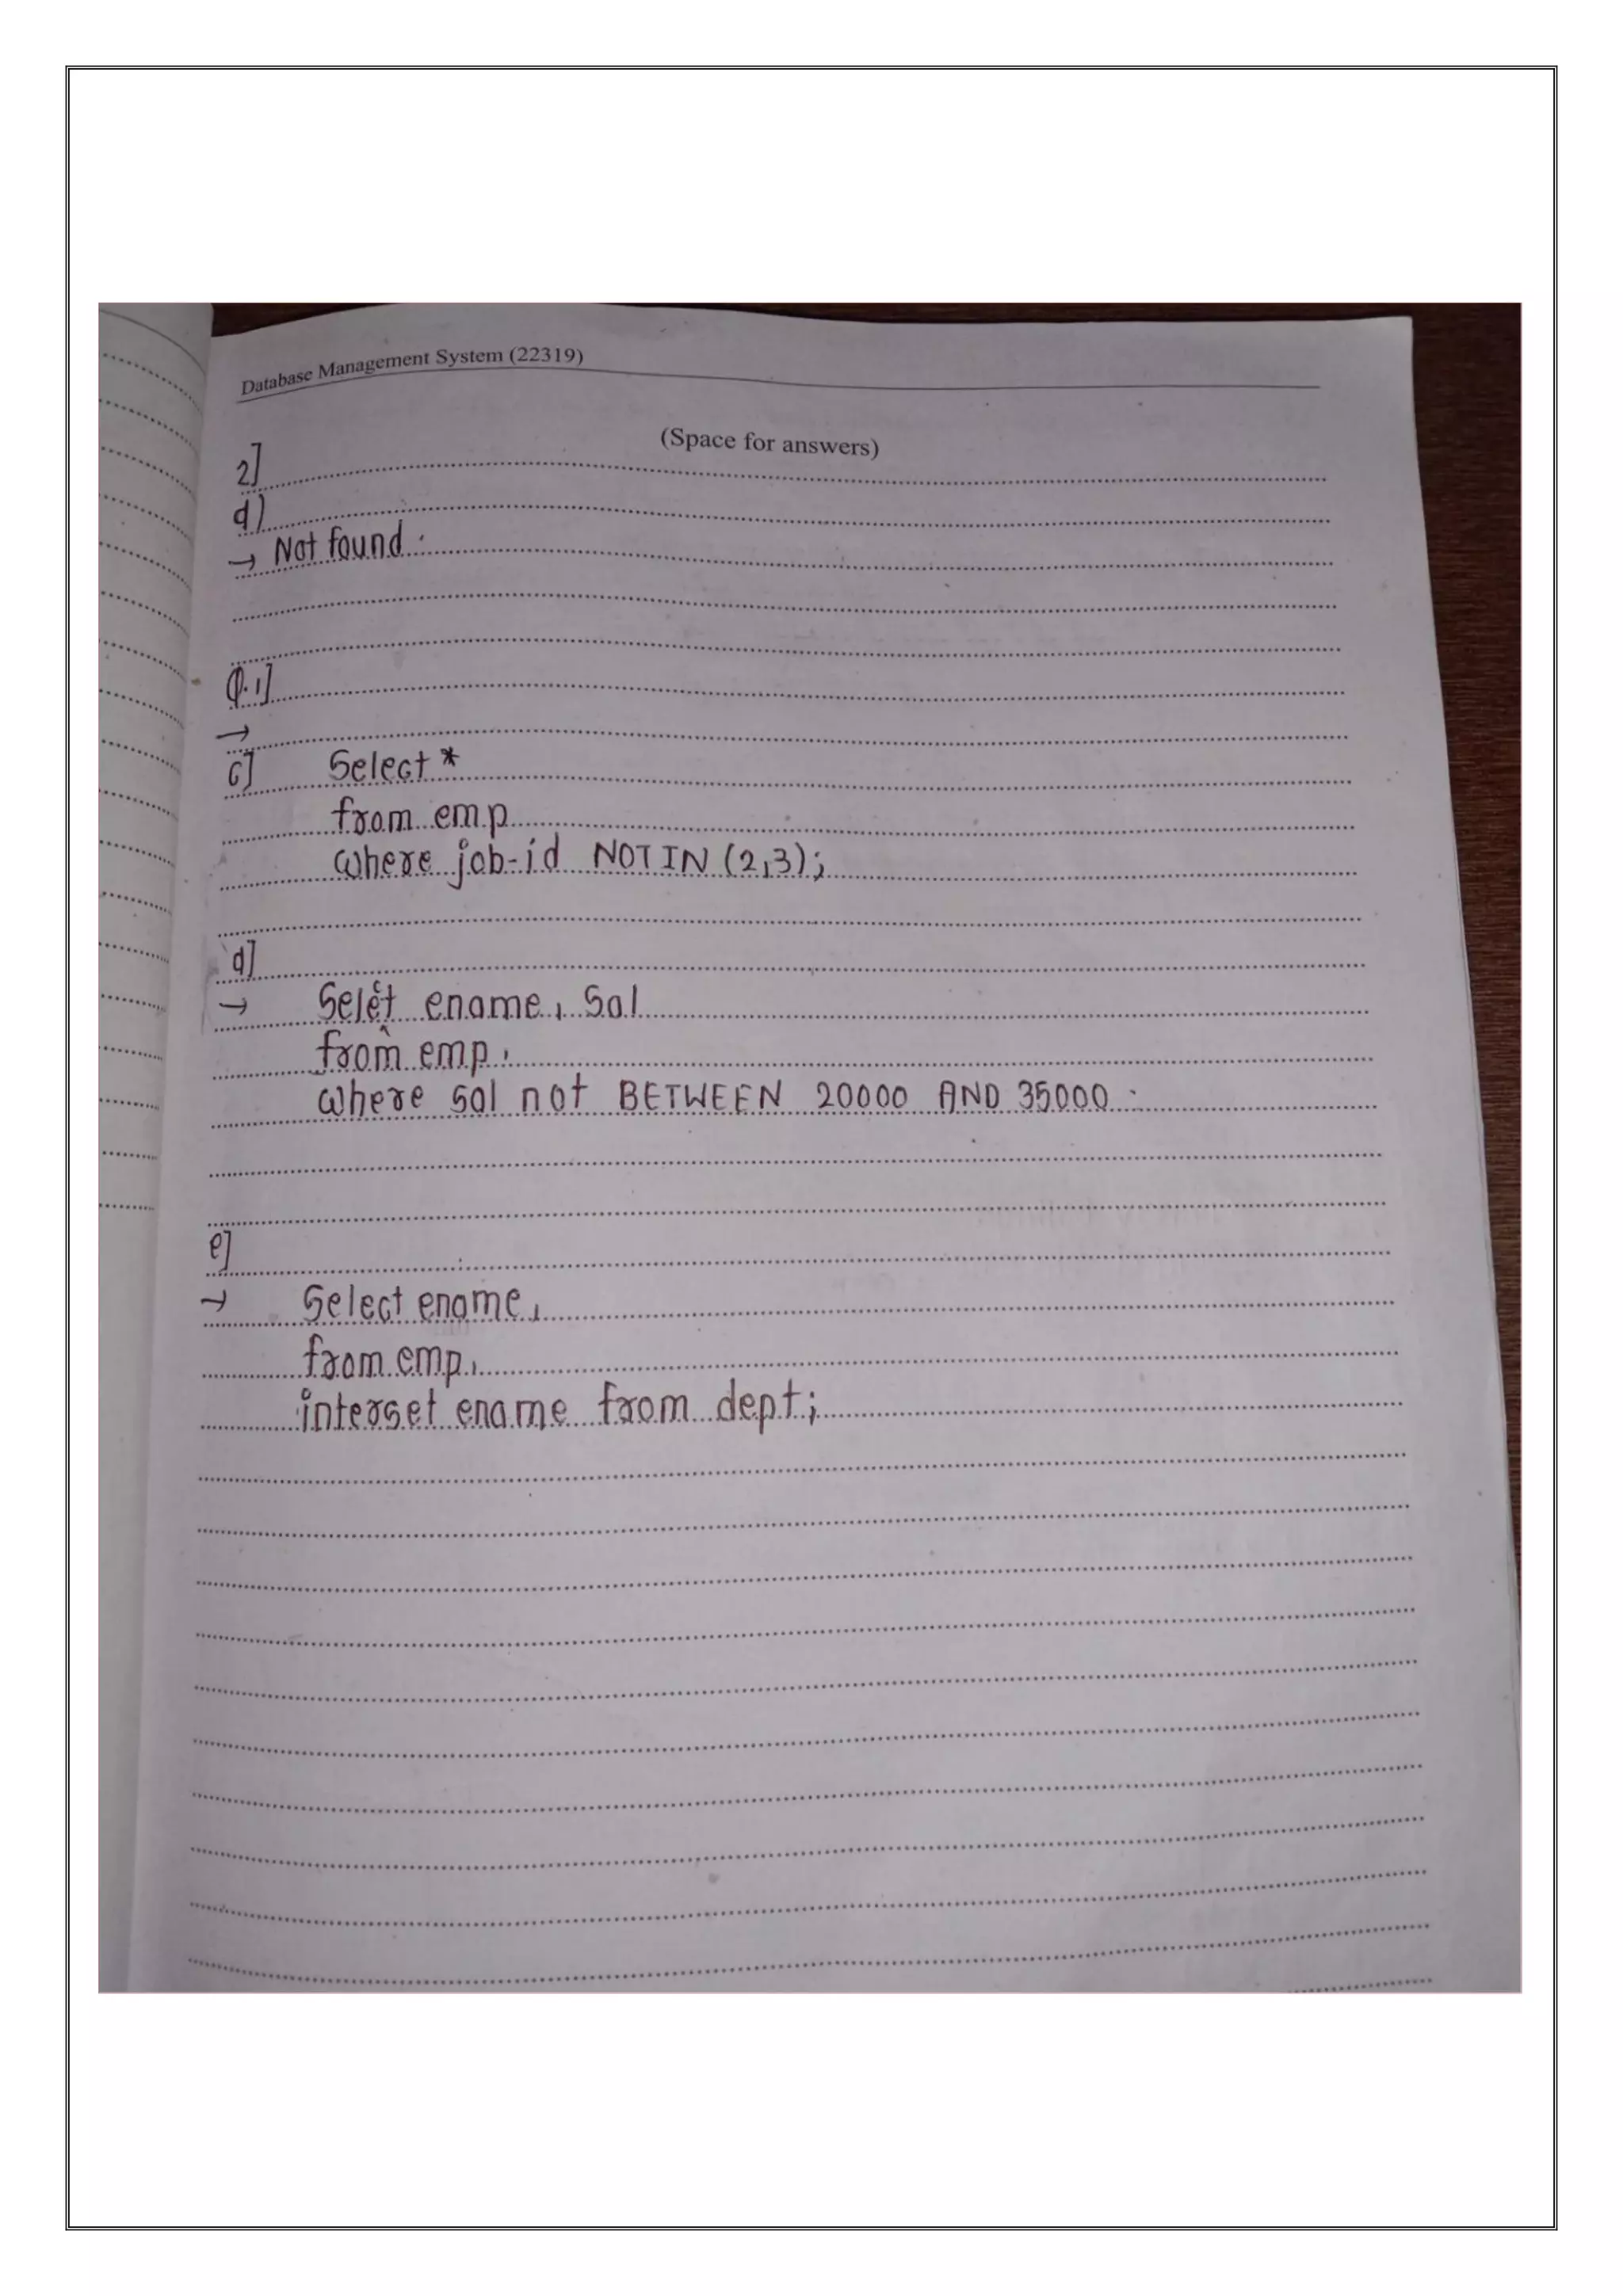 Database Management System (22319)
(Space for answers)
2]
d)
→ Not found.
Q.1]
→
c] Select *
from emp
where job-id NOT IN (2,3);
d]
→ Select ename, Sal
from emp,
where sal not BETWEEN 20000 AND 35000.
e]
→ Select ename,
from emp,
interset ename from dept;